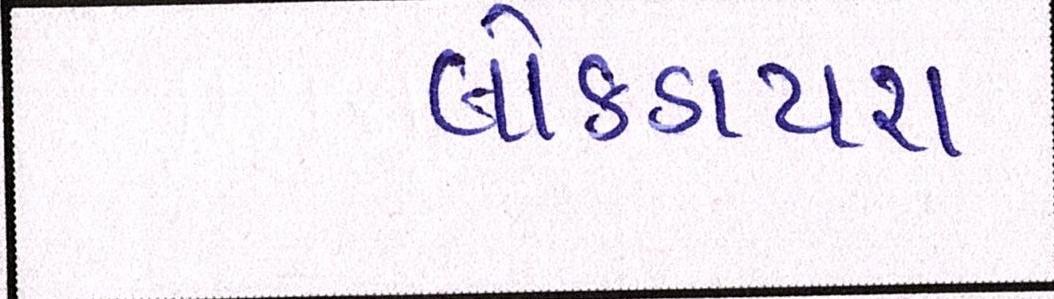 લોકડાયરા